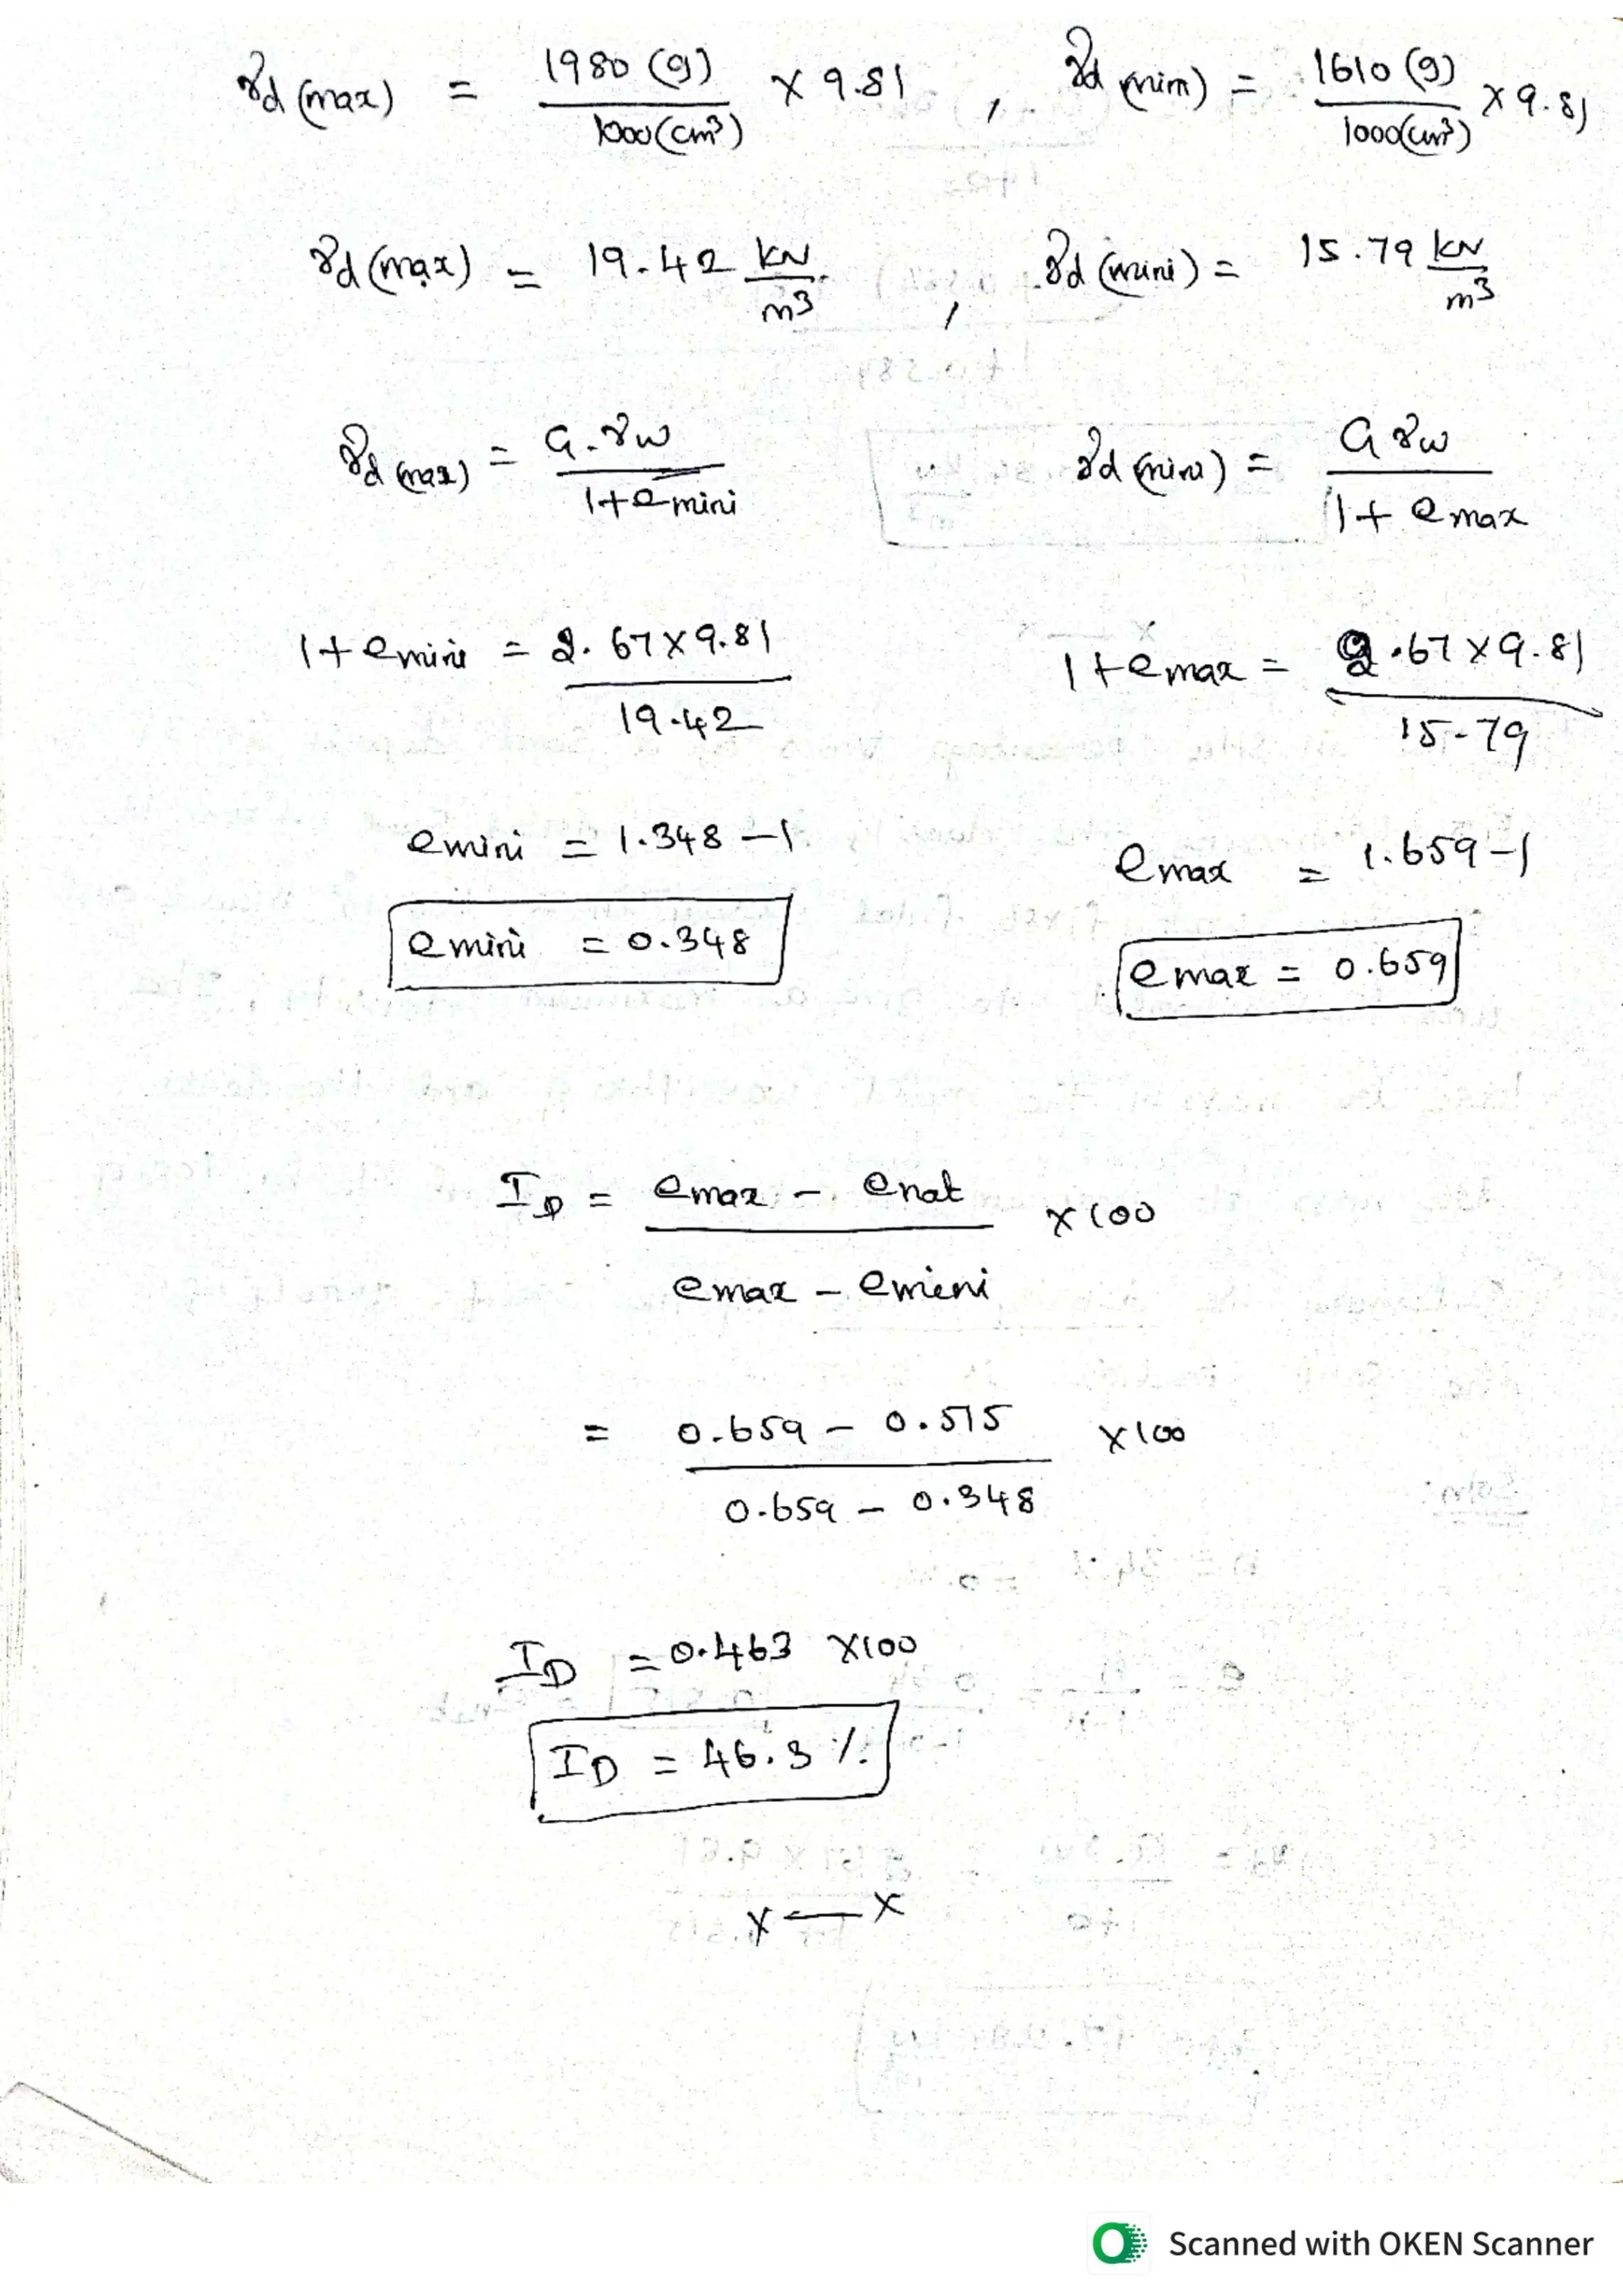 γd (max) = 1980 (g) / 1000 (cm³) × 9.81 , γd (min) = 1610 (g) / 1000 (cm³) × 9.81
γd (max) = 19.42 kN/m³ , γd (mini) = 15.79 kN/m³
γd (max) = G.γw / 1+emini γd (mini) = G γw / 1+ emax
1+emini = 2.67×9.81 / 19.42 1+emax = 2.67×9.81 / 15.79
emini = 1.348 −1 emax = 1.659−1
emini = 0.348 emax = 0.659
ID = emax − enat / emax − emini ×100
= 0.659 − 0.515 / 0.659 − 0.348 ×100
ID = 0.463 ×100
ID = 46.3 %
x — x
Scanned with OKEN Scanner